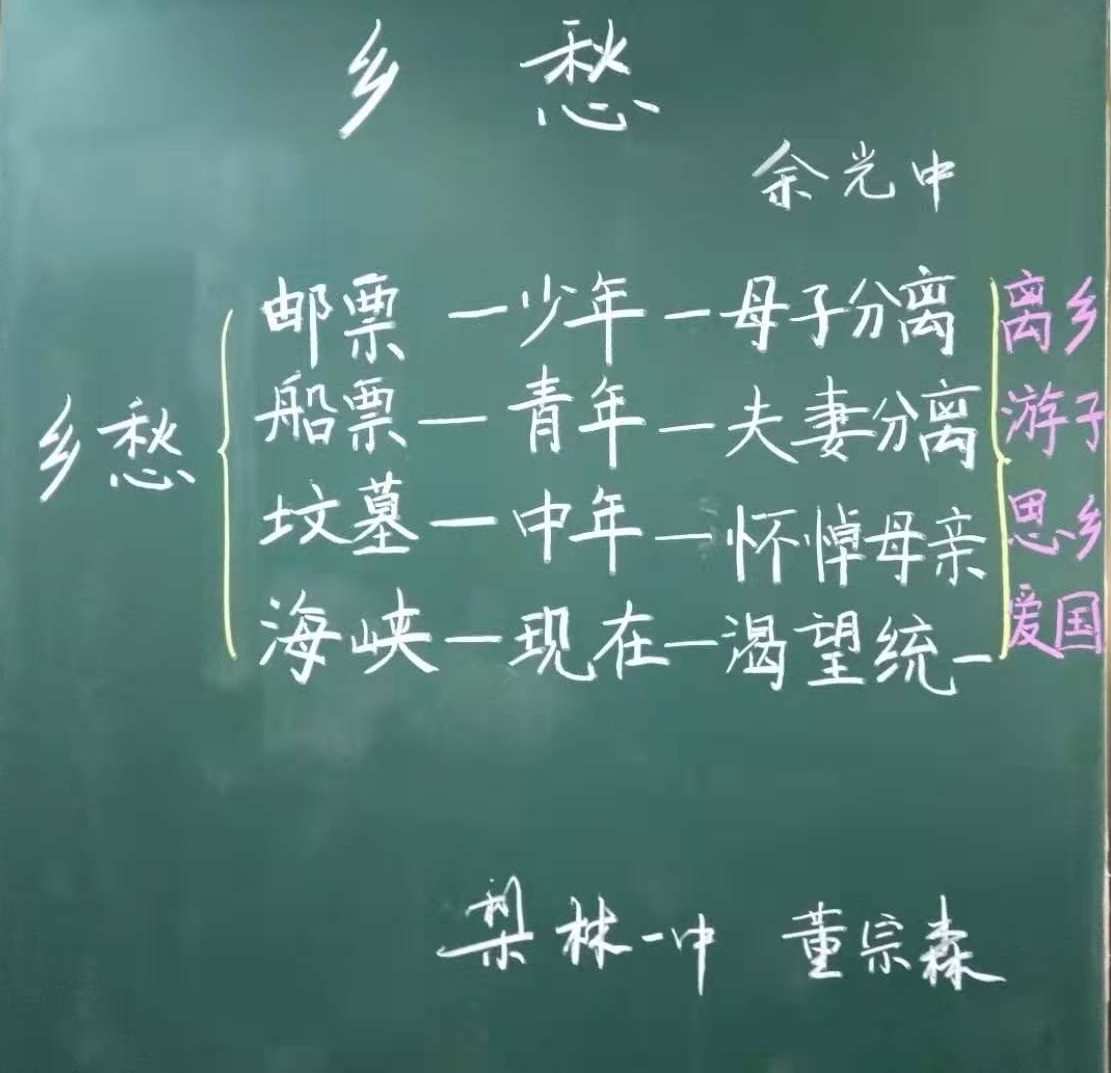 乡 愁
余光中
邮票 — 少年 — 母子分离 离乡
船票 — 青年 — 夫妻分离 游子
乡愁
坟墓 — 中年 — 怀悼母亲 思乡
海峡 — 现在 — 渴望统一 爱国
梨林一中 董宗森